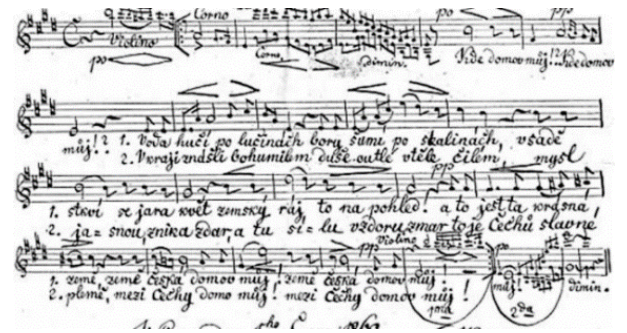 Corno po pp
Violino
po Corno dimin. Kde domov můj!? Kde domov
můj!? 1. Voda hučí po lučinách bory šumí po skalinách, v sadě
2. V kraji znášli bohumilém duše outlé v těle čilém, mysl
pp
1. stkví se jara květ zemský ráj to na pohled! a to jest ta krásná,
2. ja = snou, znik a zdar, a tu sí = lu vzdoru zmar to je Čechů slavné
po pp Violino
1. země, země česká domov můj, země česká, domov můj můj! dimin.
2. plémě, mezi Čechy domov můj! mezi Čechy domov můj!
1ma 2da